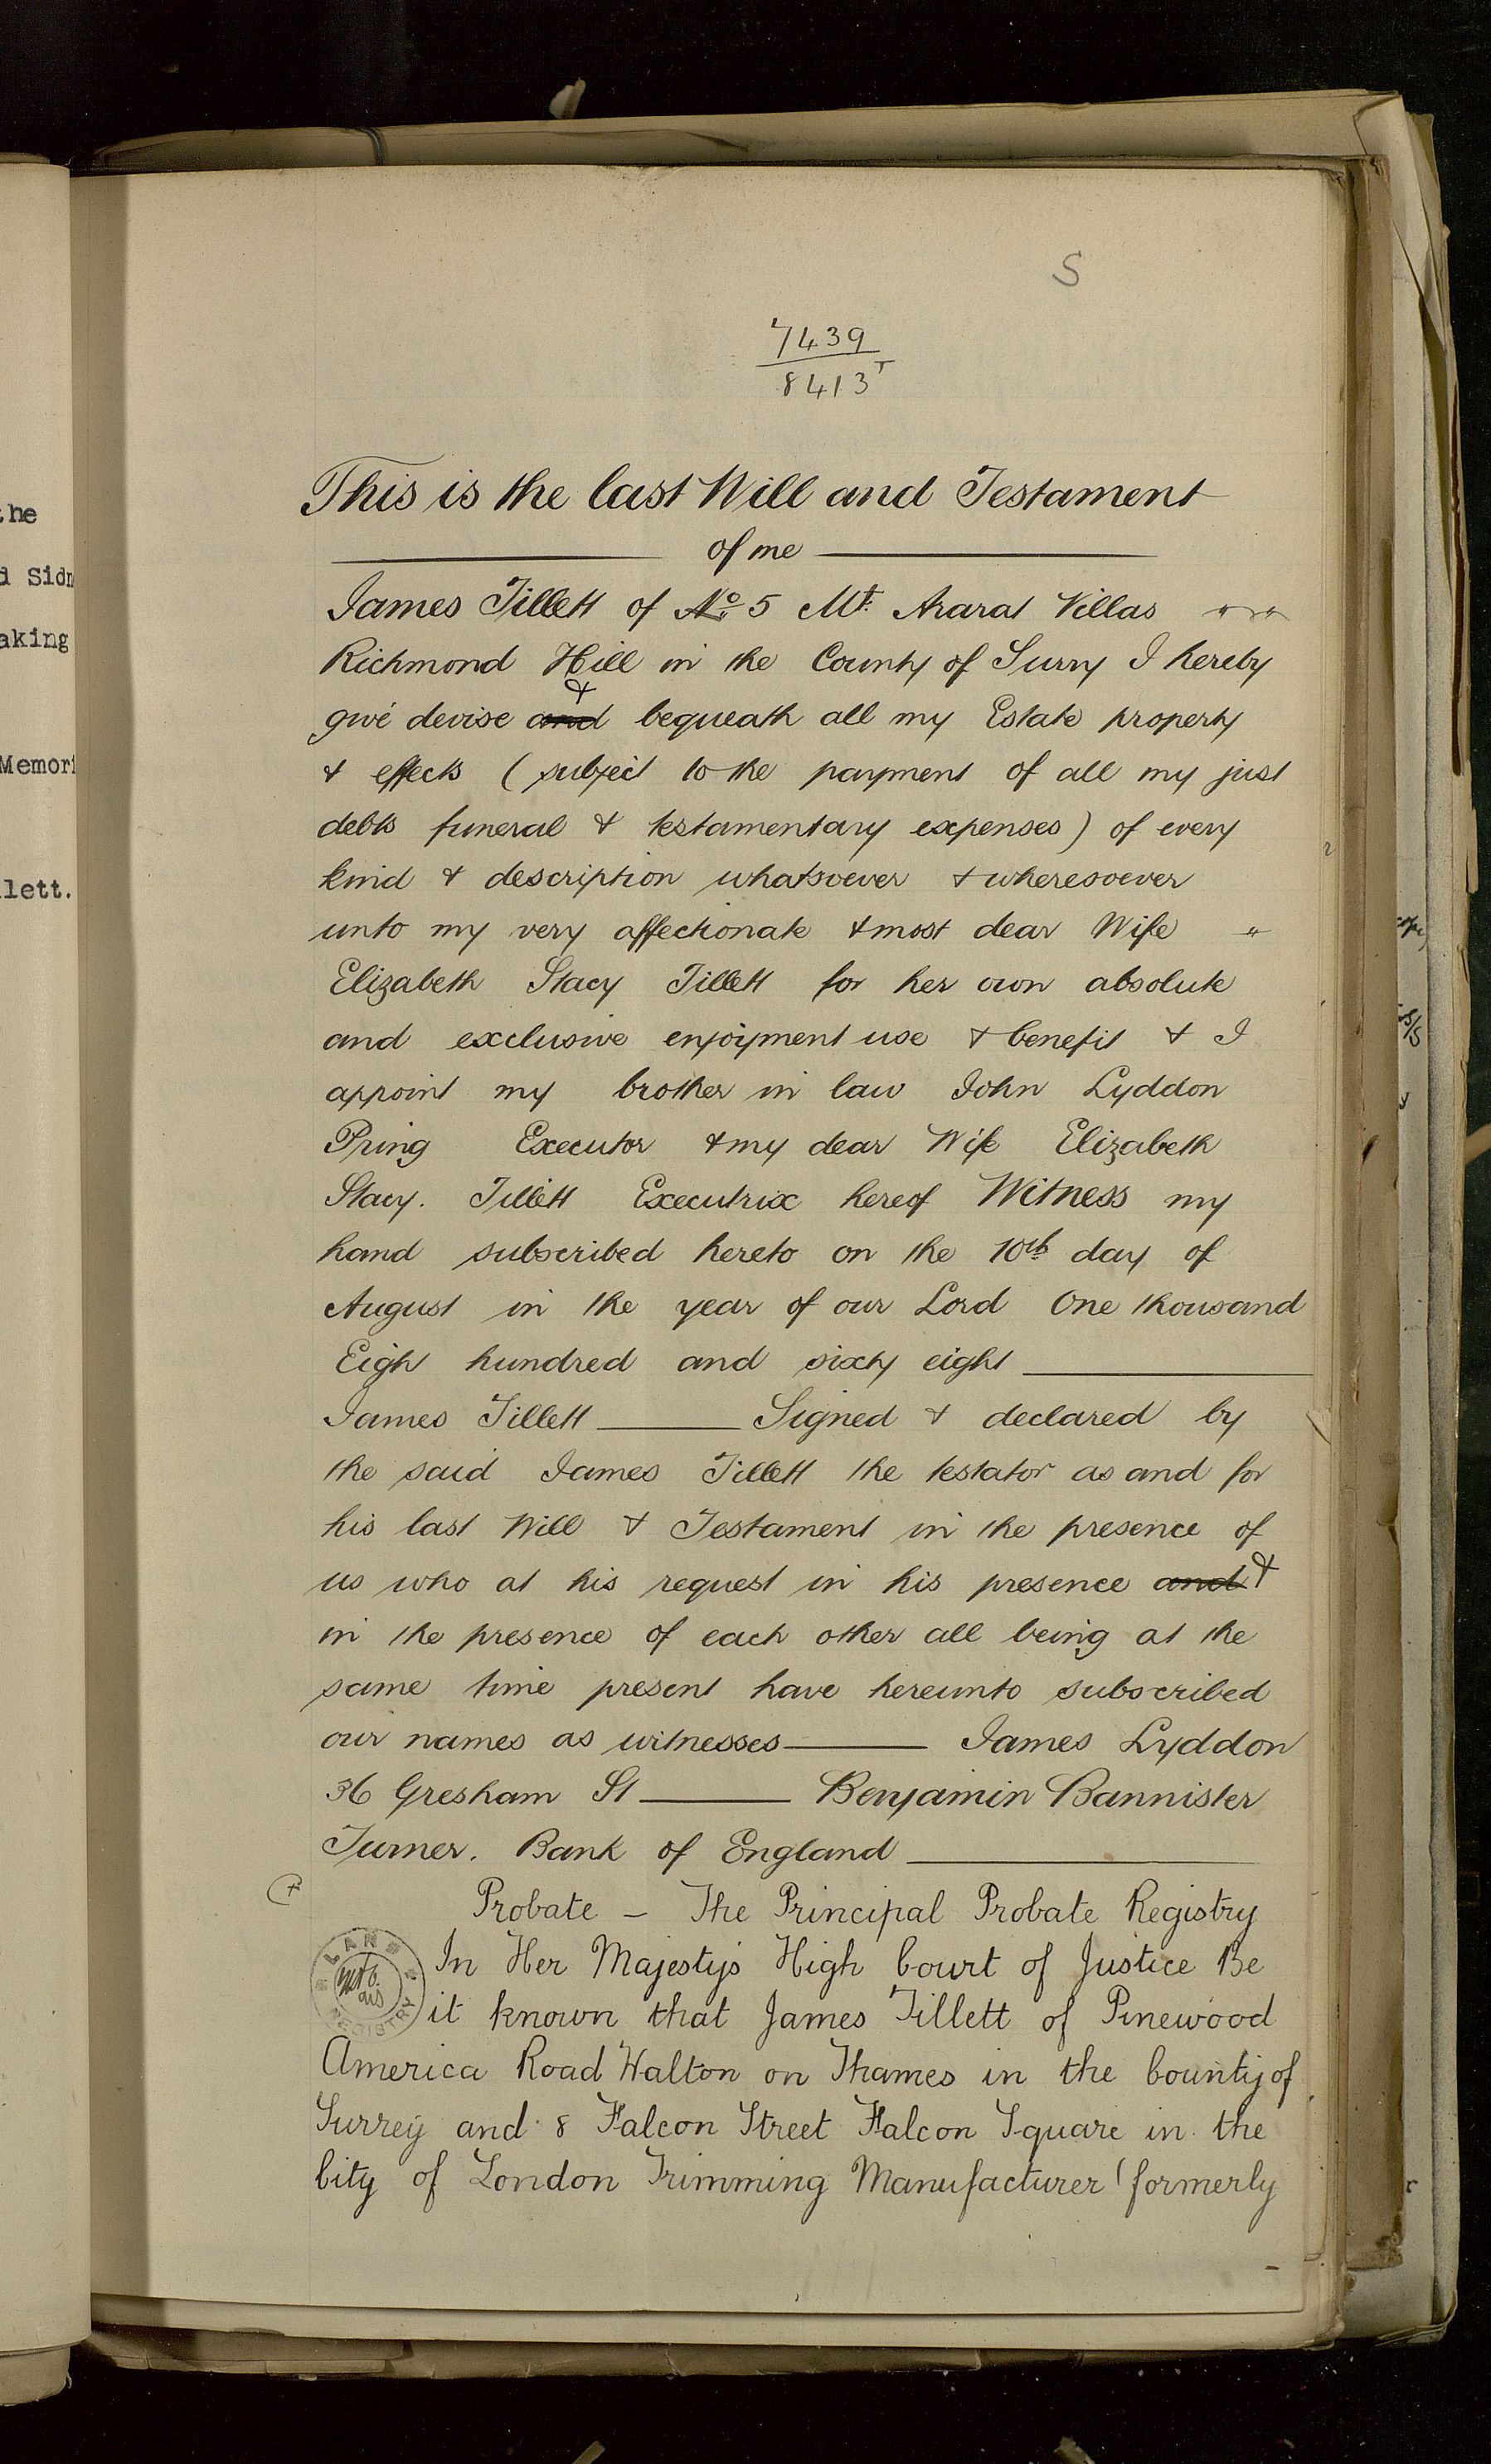 S
7439
8413T
This is the last Will and Testament
of me
James Tillett of No 5 Mt. Ararat Villas
Richmond Hill in the County of Surry I hereby
give devise and & bequeath all my Estate property
& effects (subject to the payment of all my just
debts funeral & testamentary expenses) of every
kind & description whatsoever & wheresoever
unto my very affectionate & most dear Wife "
Elizabeth Stacy Tillett for her own absolute
and exclusive enjoyment use & benefit & I
appoint my brother in law John Lyddon
Pring Executor & my dear Wife Elizabeth
Stacy. Tillett Executrix hereof Witness my
hand subscribed hereto on the 10th day of
August in the year of our Lord One thousand
Eight hundred and sixty eight
James Tillett Signed & declared by
the said James Tillett the testator as and for
his last Will & Testament in the presence of
us who at his request in his presence and &
in the presence of each other all being at the
same time present have hereunto subscribed
our names as witnesses James Lyddon
36 Gresham St Benjamin Bannister
Turner. Bank of England
Probate - The Principal Probate Registry
In Her Majesty's High Court of Justice Be
it known that James Tillett of Pinewood
America Road Walton on Thames in the County of
Surrey and 8 Falcon Street Falcon Square in the
City of London Trimming Manufacturer (formerly
LAND
REGISTRY
the
d Sidn
aking
Memori
lett.